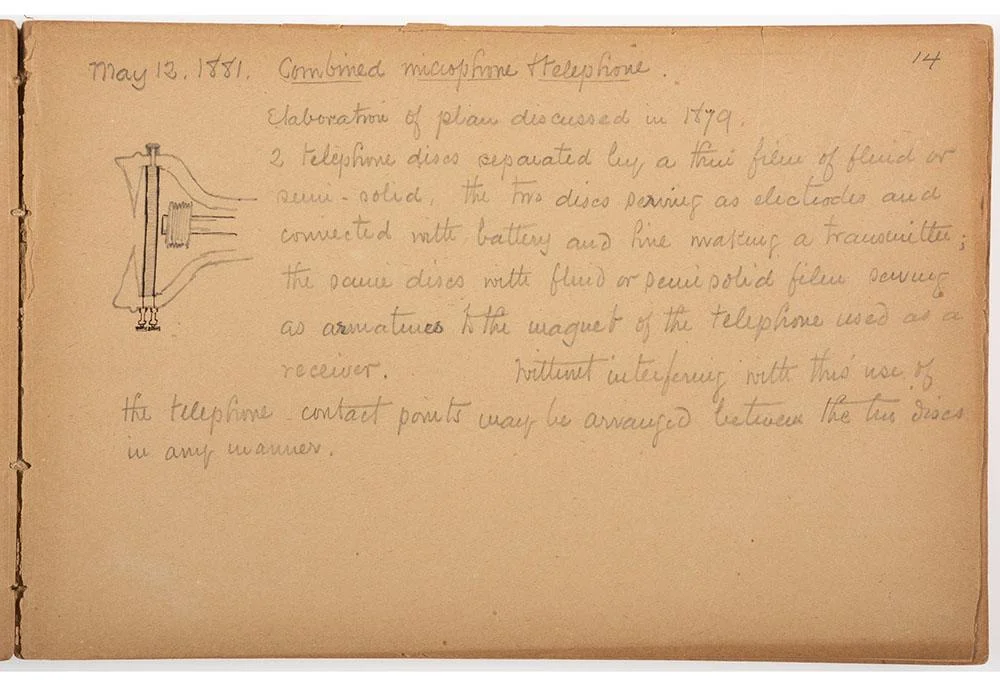 May 12. 1881. Combined microphone & telephone. 14
Elaboration of plan discussed in 1879.
2 telephone discs separated by a thin film of fluid or
semi-solid, the two discs serving as electrodes and
connected with battery and line making a transmitter;
the same discs with fluid or semi solid film serving
as armatures to the magnet of the telephone used as a
receiver. Without interfering with this use of
the telephone contact points may be arranged between the two discs
in any manner.